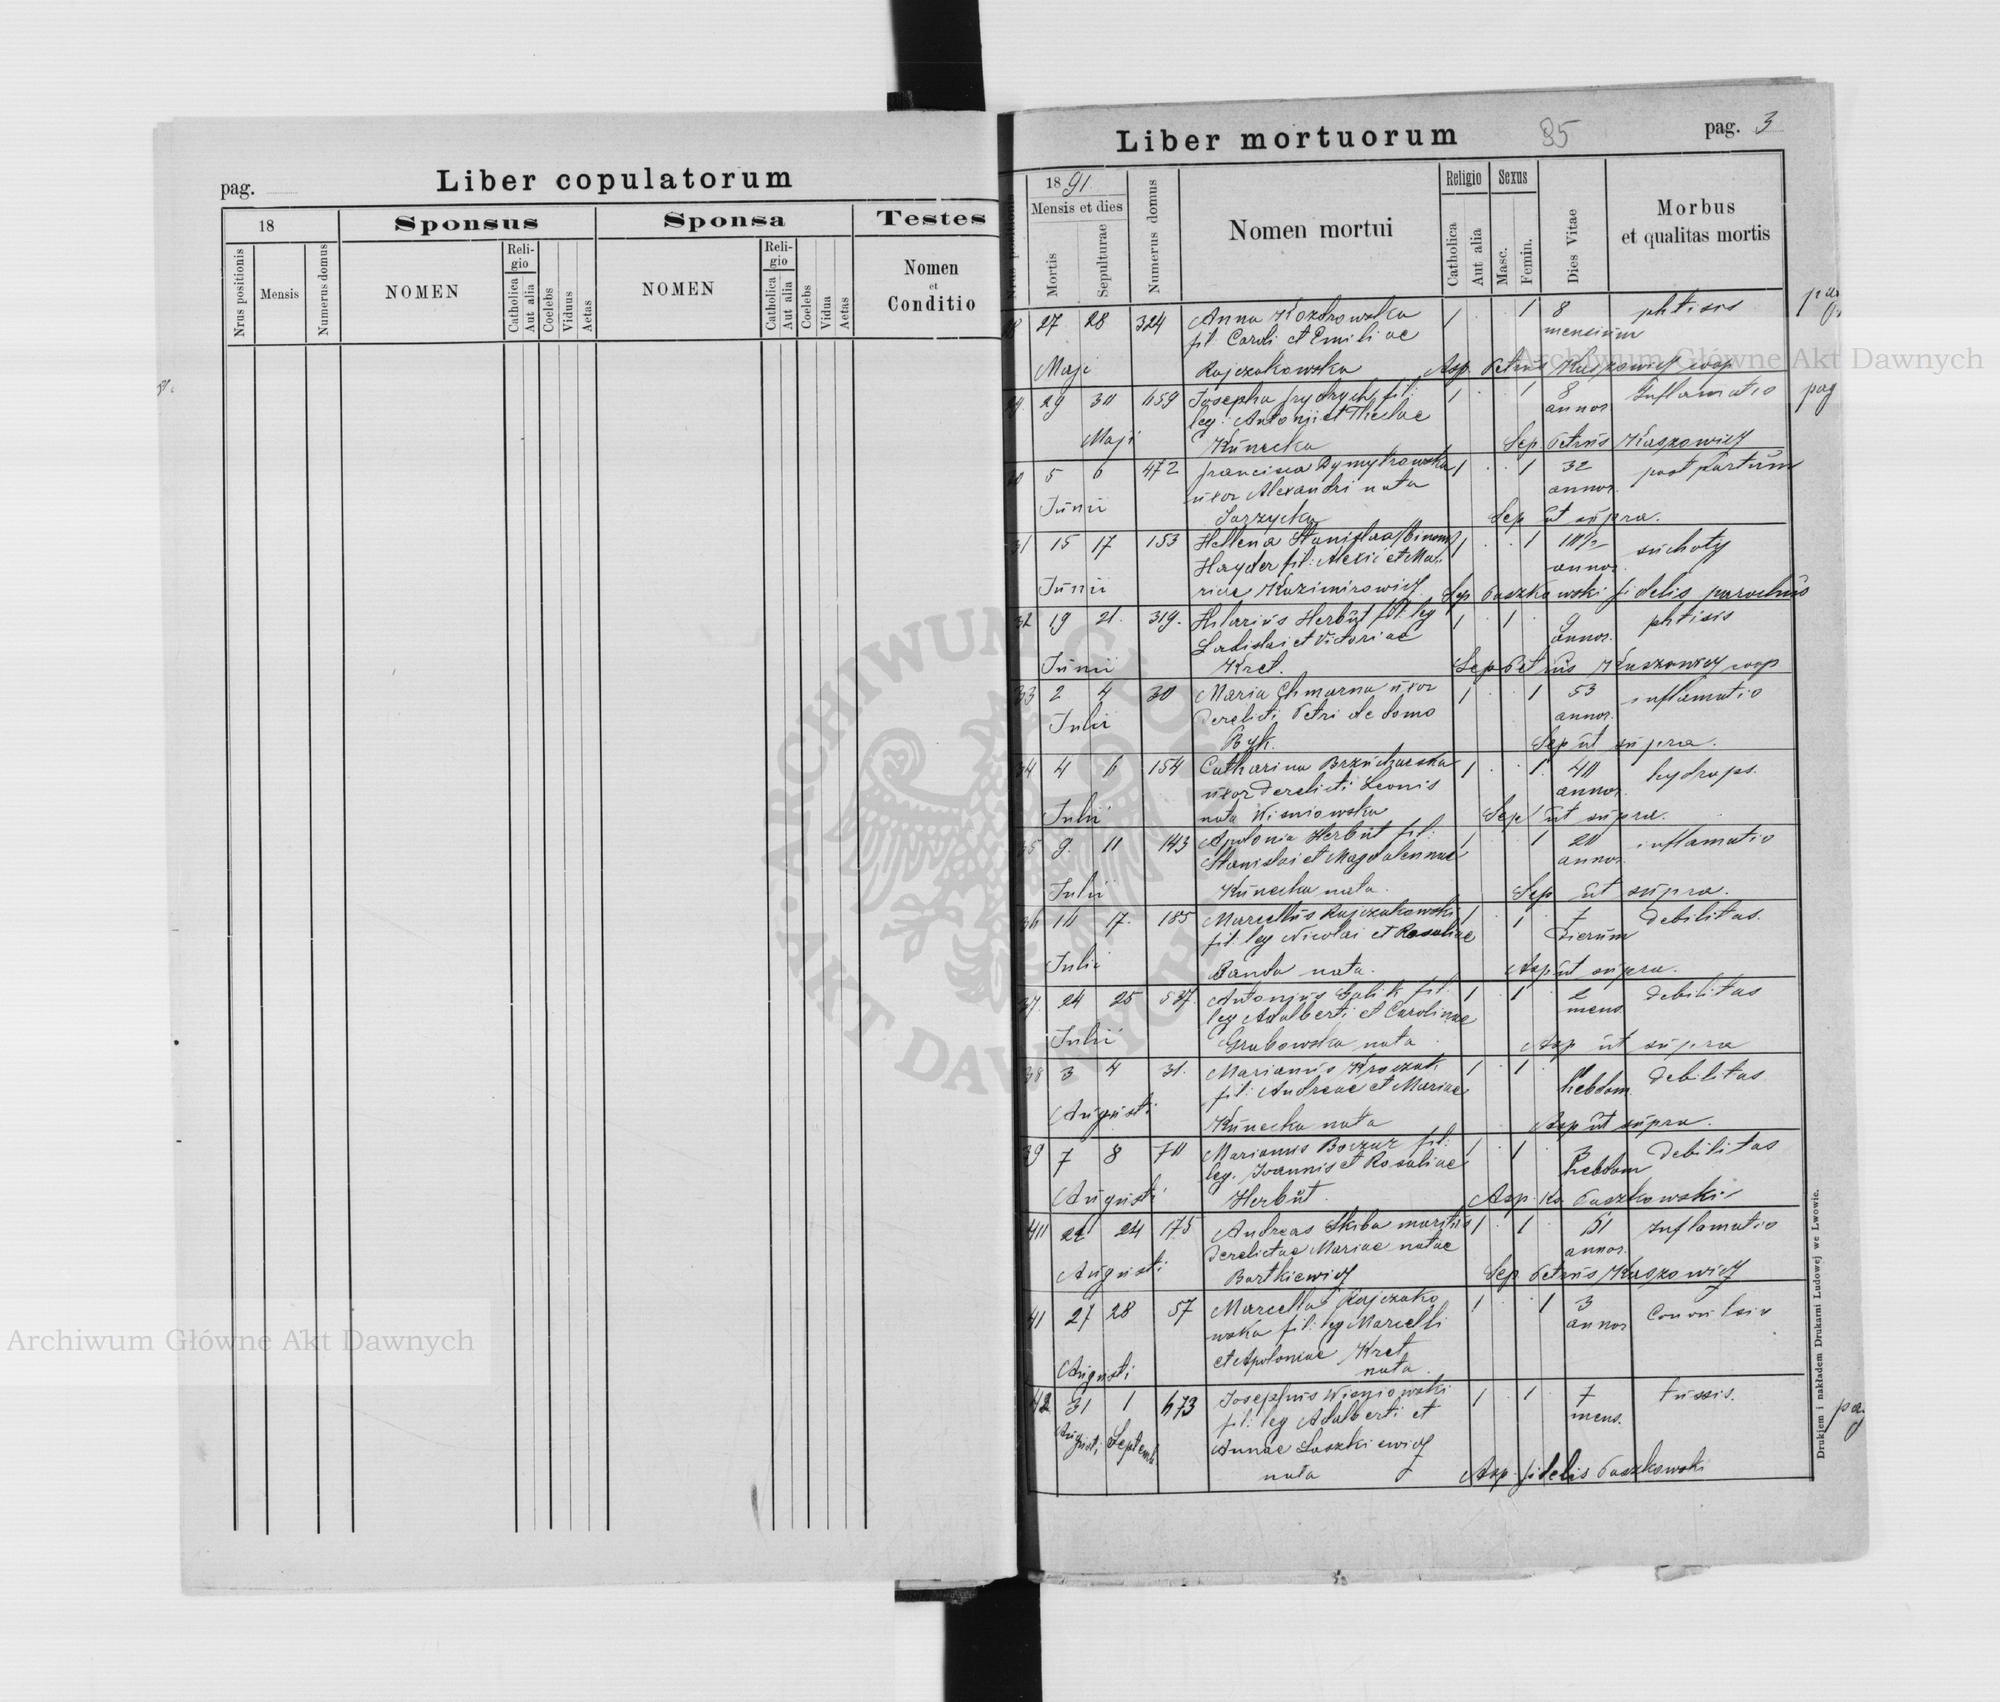 Liber copulatorum
pag.
18
Sponsus
Sponsa
Testes
Nrus positionis
Mensis
Numerus domus
NOMEN
Religio
Catholica
Aut alia
Coelebs
Viduus
Aetas
NOMEN
Religio
Catholica
Aut alia
Coelebs
Vidua
Aetas
Nomen
et
Conditio
Liber mortuorum
35
pag. 3
1891
Mensis et dies
Mortis
Sepulturae
Numerus domus
Nomen mortui
Religio
Catholica
Aut alia
Sexus
Masc.
Femin.
Dies Vitae
Morbus
et qualitas mortis
27 28 324 Anna Kozdrowska 1 1 8 phtisis
fil. Caroli et Emiliae mensium
Maji Rajczakowska Asp. Petrus Kuszowicz coop
29 659 Josepha fil: 1 1 8 Inflamatio pag
leg: Antonii et Theclae annor
Maji Kunecka Sep Petrus Kuszowicz
5 6 472 Francisca Dymytrowska 1 1 32 post partum
uxor Alexandri nata annor.
Junii Jarzycka Sep ut supra.
31 15 17 153 Hellena Stanislaa 1 1 suchoty
Hayder fil: Alexii et Ma annor.
Junii riae Kazimirowicz Sep Paszkowski fidelis parochus
32 19 21. 319. Hilarius Herbut fil. leg 1 1 9 phtisis
Ladislai et Victoriae annor.
Junii Kret. Sep Petrus Kuszowicz coop
33 2 4 30 Maria Chmarna uxor 1 1 53 inflamatio
derelicti Petri de domo annor.
Julii Byk. Sep ut supra.
34 4 6 154 Catharina Brzucharska 1 1 40 hydrops.
uxor derelicti Leonis annor.
Julii nata Wisniowska Sep ut supra.
35 9. 11 143 Apolonia Herbut fil: 1 1 20 inflamatio
Stanislai et Magdalennae annor.
Julii Kunecka nata. Sep ut supra.
36 16 17. 185 Marcellus Rajczakowski 1 1 7 debilitas.
fil. leg Nicolai et Rosaliae dierum
Julii Panda nata. Asp ut supra.
37. 24 25 537. Antonius Galik fil. 1 1 2 debilitas
leg Adalberti et Carolinae mens.
Julii Grabowska nata Asp ut supra
38 3 4 31. Marianus Kroczak 1 1 debilitas
fil: Andreae et Mariae hebdom.
Augusti Kunecka nata Asp ut supra.
39 7 8 70 Marianus Boczar fil: 1 1 3 debilitas
leg. Joannis et Rosaliae hebdom
Augusti Herbut. Asp. Paszkowski
40 22 24 175 Andreas Skiba maritus 1 1 61 Inflamatio
derelictae Mariae natae annor.
Augusti Bartkiewicz Sep Petrus Kuszowicz
41 27 28 57 Marcella Rajczako 1 1 3
wska fil: leg Marcelli annor
et Apoloniae Kret
Augusti nata.
42 31 1 673 Josephus Wisniowski 1 1 7 tussis.
fil: leg Adalberti et mens.
Augusti Septemb Annae Laszkiewicz
nata Asp. fidelis Paszkowski
Drukiem i nakładem Drukarni Ludowej we Lwowie.
Archiwum Główne Akt Dawnych
Archiwum Główne Akt Dawnych
ARCHIWUM GŁÓWNE AKT DAWNYCH